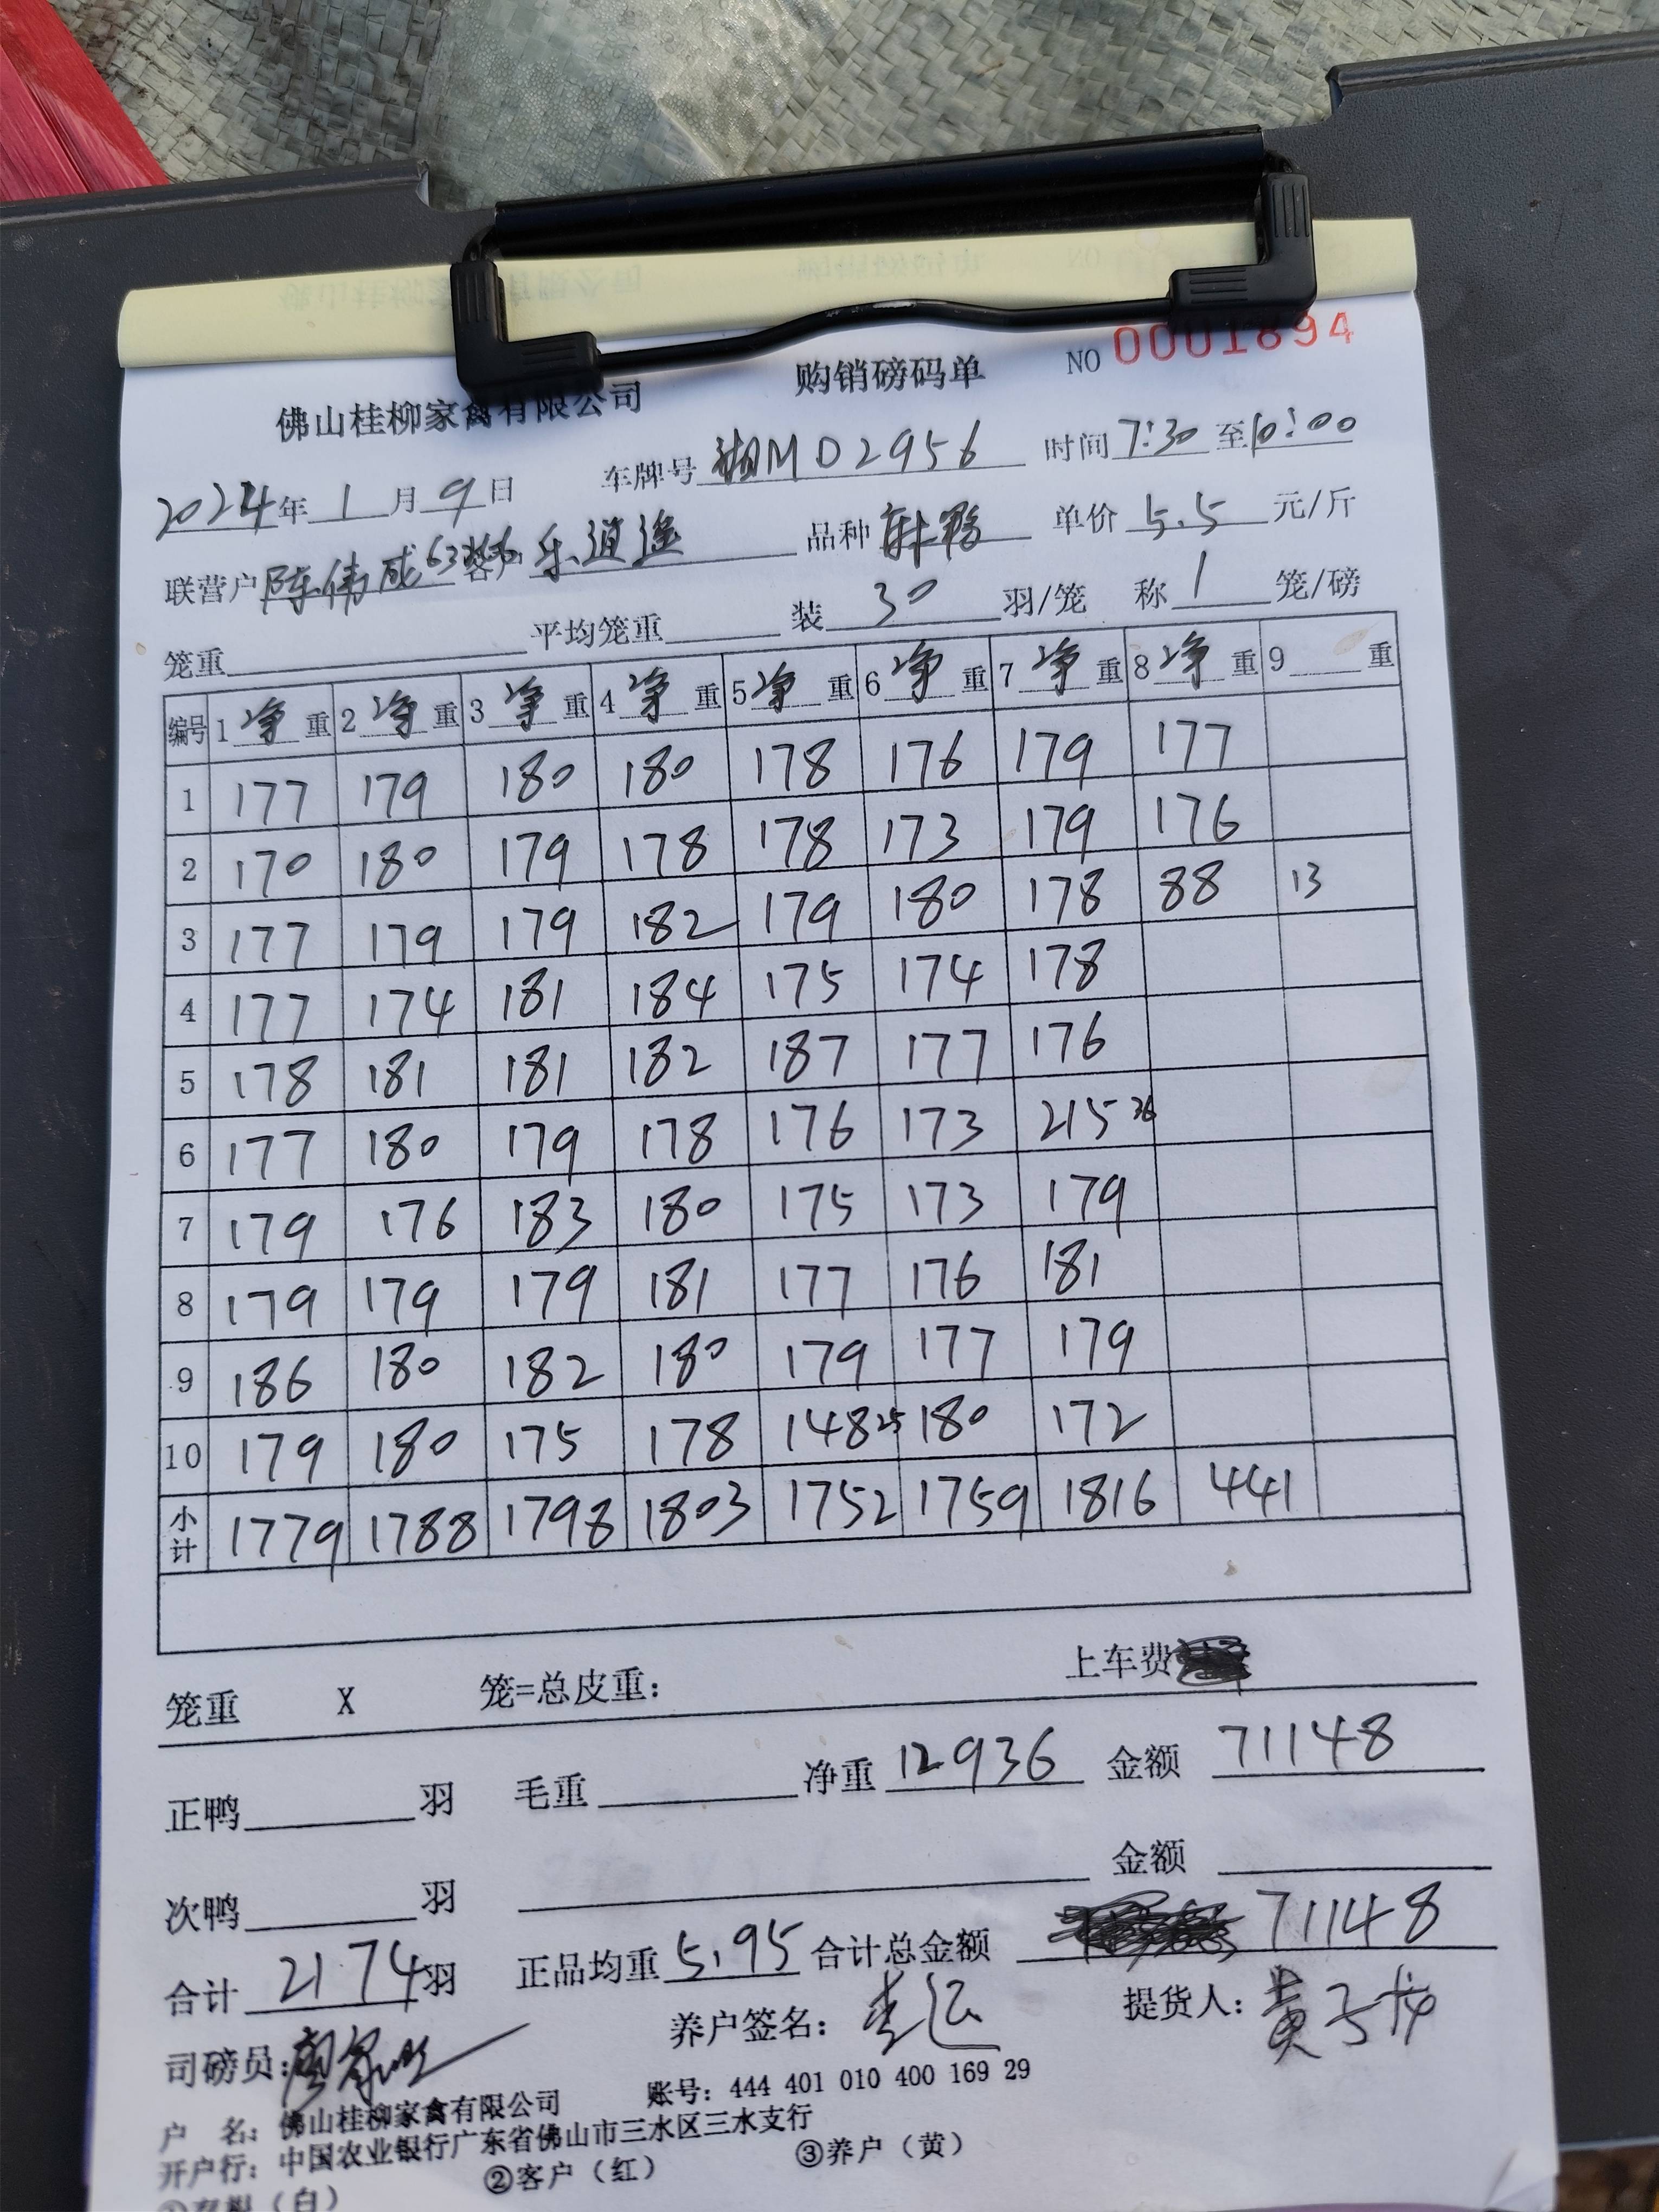 佛山桂柳家禽有限公司 购销磅码单 NO 0001894
2024年 1 月 9 日 车牌号 湘MD2956 时间 7:30 至 10:00
联营户 陈伟成 客户 乐逍遥 品种 单价 5.5 元/斤
笼重 平均笼重 装 30 羽/笼 称 1 笼/磅
编号 1 净 重 2 净 重 3 净 重 4 净 重 5 净 重 6 净 重 7 净 重 8 净 重 9 重
1 177 179 180 180 178 176 179 177
2 170 180 179 178 178 173 179 176
3 177 179 179 182 179 180 178 88 13
4 177 174 181 184 175 174 178
5 178 181 181 182 187 177 176
6 177 180 179 178 176 173 215 36
7 179 176 183 180 175 173 179
8 179 179 179 181 177 176 181
9 186 180 182 180 179 177 179
10 179 180 175 178 148 25 180 172
小计 1779 1788 1798 1803 1752 1759 1816 441
笼重 X 笼=总皮重: 上车费
正鸭 羽 毛重 净重 12936 金额 71148
次鸭 羽 金额
合计 2174 羽 正品均重 5.95 合计总金额 71148
司磅员: 养户签名: 提货人:
户 名: 佛山桂柳家禽有限公司 账号: 444 401 010 400 169 29
开户行: 中国农业银行广东省佛山市三水区三水支行
(白) ②客户(红) ③养户(黄)